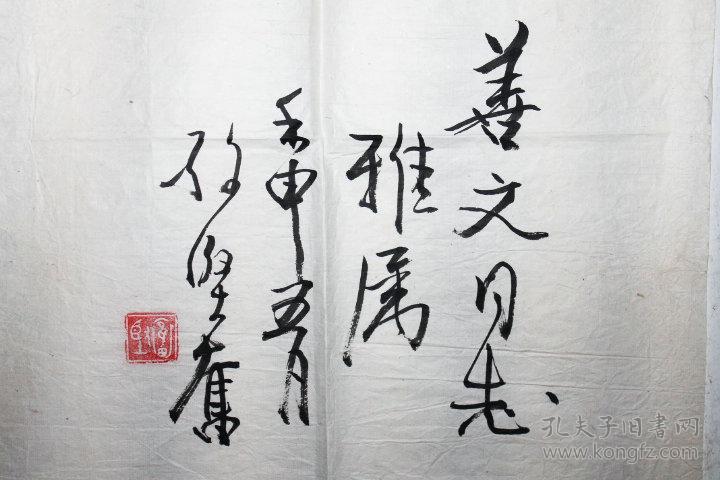 善文同志
雅属
壬申五月
孔夫子旧书网
www.kongfz.com